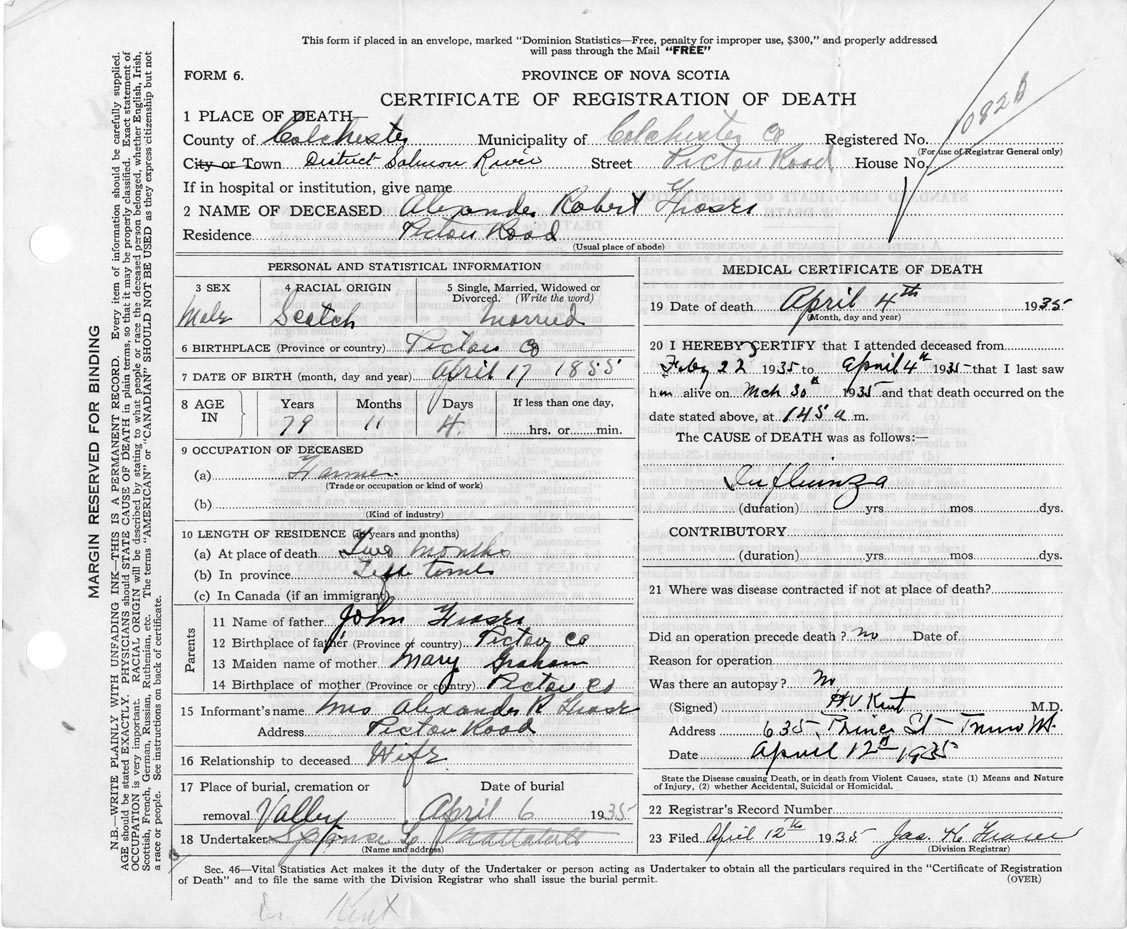 This form if placed in an envelope, marked "Dominion Statistics—Free, penalty for improper use, $300," and properly addressed
will pass through the Mail "FREE"
FORM 6.
PROVINCE OF NOVA SCOTIA
CERTIFICATE OF REGISTRATION OF DEATH
1 PLACE OF DEATH—
County of Colchester Municipality of Colchester Co Registered No.
(For use of Registrar General only)
City or Town District Salmon River Street Pictou Road House No.
If in hospital or institution, give name
2 NAME OF DECEASED Alexander Robert Fraser
Residence Pictou Road
(Usual place of abode)
PERSONAL AND STATISTICAL INFORMATION
3 SEX 4 RACIAL ORIGIN 5 Single, Married, Widowed or
Divorced. (Write the word)
Male Scotch Married
6 BIRTHPLACE (Province or country) Pictou Co
7 DATE OF BIRTH (month, day and year) April 17 1855
8 AGE IN Years Months Days If less than one day,
79 11 hrs. or min.
9 OCCUPATION OF DECEASED
(a) Farmer
(Trade or occupation or kind of work)
(b)
(Kind of industry)
10 LENGTH OF RESIDENCE (in years and months)
(a) At place of death months
(b) In province Life time
(c) In Canada (if an immigrant)
Parents
11 Name of father John Fraser
12 Birthplace of father (Province or country) Pictou Co
13 Maiden name of mother Mary Graham
14 Birthplace of mother (Province or country) Pictou Co
15 Informant's name Mrs Alexander R Fraser
Address Pictou Road
16 Relationship to deceased Wife
17 Place of burial, cremation or Date of burial
removal Valley April 6 1935
18 Undertaker
(Name and address)
MEDICAL CERTIFICATE OF DEATH
19 Date of death April 4th 1935
(Month, day and year)
20 I HEREBY CERTIFY that I attended deceased from
Feby 22 1935 to April 4th 1935 that I last saw
him alive on Mch 30th 1935 and that death occurred on the
date stated above, at 145 a m.
The CAUSE of DEATH was as follows:—
Influinza
(duration) yrs. mos. dys.
CONTRIBUTORY
(duration) yrs. mos. dys.
21 Where was disease contracted if not at place of death?
Did an operation precede death? no Date of
Reason for operation
Was there an autopsy? No
(Signed) H V Kent M.D.
Address 635 Prince St Truro NS.
Date April 12th 1935
State the Disease causing Death, or in death from Violent Causes, state (1) Means and Nature
of Injury, (2) whether Accidental, Suicidal or Homicidal.
22 Registrar's Record Number
23 Filed April 12th 1935 Jas. K. Fraser
(Division Registrar)
Sec. 46—Vital Statistics Act makes it the duty of the Undertaker or person acting as Undertaker to obtain all the particulars required in the "Certificate of Registration
of Death" and to file the same with the Division Registrar who shall issue the burial permit. (OVER)
Dr. Kent
MARGIN RESERVED FOR BINDING
N.B.—WRITE PLAINLY WITH UNFADING INK—THIS IS A PERMANENT RECORD. Every item of information should be carefully supplied.
AGE should be stated EXACTLY. PHYSICIANS should STATE CAUSE OF DEATH in plain terms, so that it may be properly classified. Exact statement of
OCCUPATION is very important. RACIAL ORIGIN will be described by stating to what people or race the deceased person belonged, whether English, Irish,
Scottish, French, German, Russian, Ruthenian, etc. The terms "AMERICAN" or "CANADIAN" SHOULD NOT BE USED as they express citizenship but not
a race or people. See instructions on back of certificate.